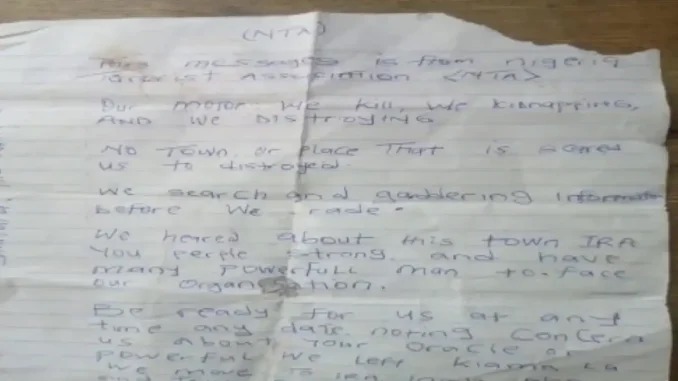 (NTA)
This messages is from nigeria
Terorist Assosiation <NTA>
Our motor we kill, we kidnapping,
AND we DISTROYING
NO TOWN or Place THAT is scared
us to distroyed.
We search and gaddering information
before we rade.
We heared about this town IRA
You people strong and have
many powerfull man to-face
our organisation.
Be ready for us at any
time any date noting concern
us about your oracle or
powerful we left kiama
we move to